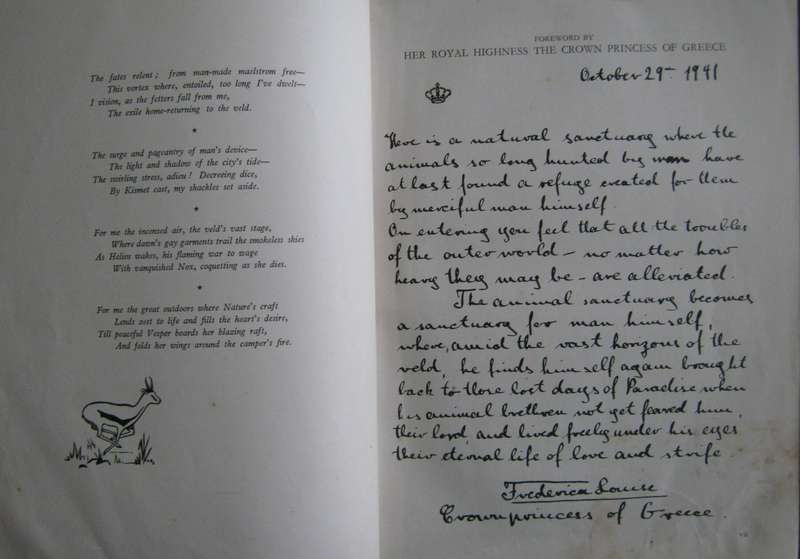 The fates relent; from man-made maelstrom free—
This vortex where, entoiled, too long I've dwelt—
I vision, as the fetters fall from me,
The exile home-returning to the veld.
*
The surge and pageantry of man's device—
The light and shadow of the city's tide—
The swirling stress, adieu! Decreeing dice,
By Kismet cast, my shackles set aside.
*
For me the incensed air, the veld's vast stage,
Where dawn's gay garments trail the smokeless skies
As Helios wakes, his flaming war to wage
With vanquished Nox, coquetting as she dies.
*
For me the great outdoors where Nature's craft
Lends zest to life and fills the heart's desire,
Till peaceful Vesper boards her blazing raft,
And folds her wings around the camper's fire.
FOREWORD BY
HER ROYAL HIGHNESS THE CROWN PRINCESS OF GREECE
October 29th 1941
Here is a natural sanctuary where the
animals so long hunted by man have
at last found a refuge created for them
by merciful man himself.
On entering you feel that all the troubles
of the outer world – no matter how
heavy they may be – are alleviated.
The animal sanctuary becomes
a sanctuary for man himself,
where, amid the vast horizons of the
veld, he finds himself again brought
back to those lost days of Paradise when
his animal brethren not yet feared him,
their lord, and lived freely under his eyes
their eternal life of love and strife.
Frederica Louise
Crownprincess of Greece.